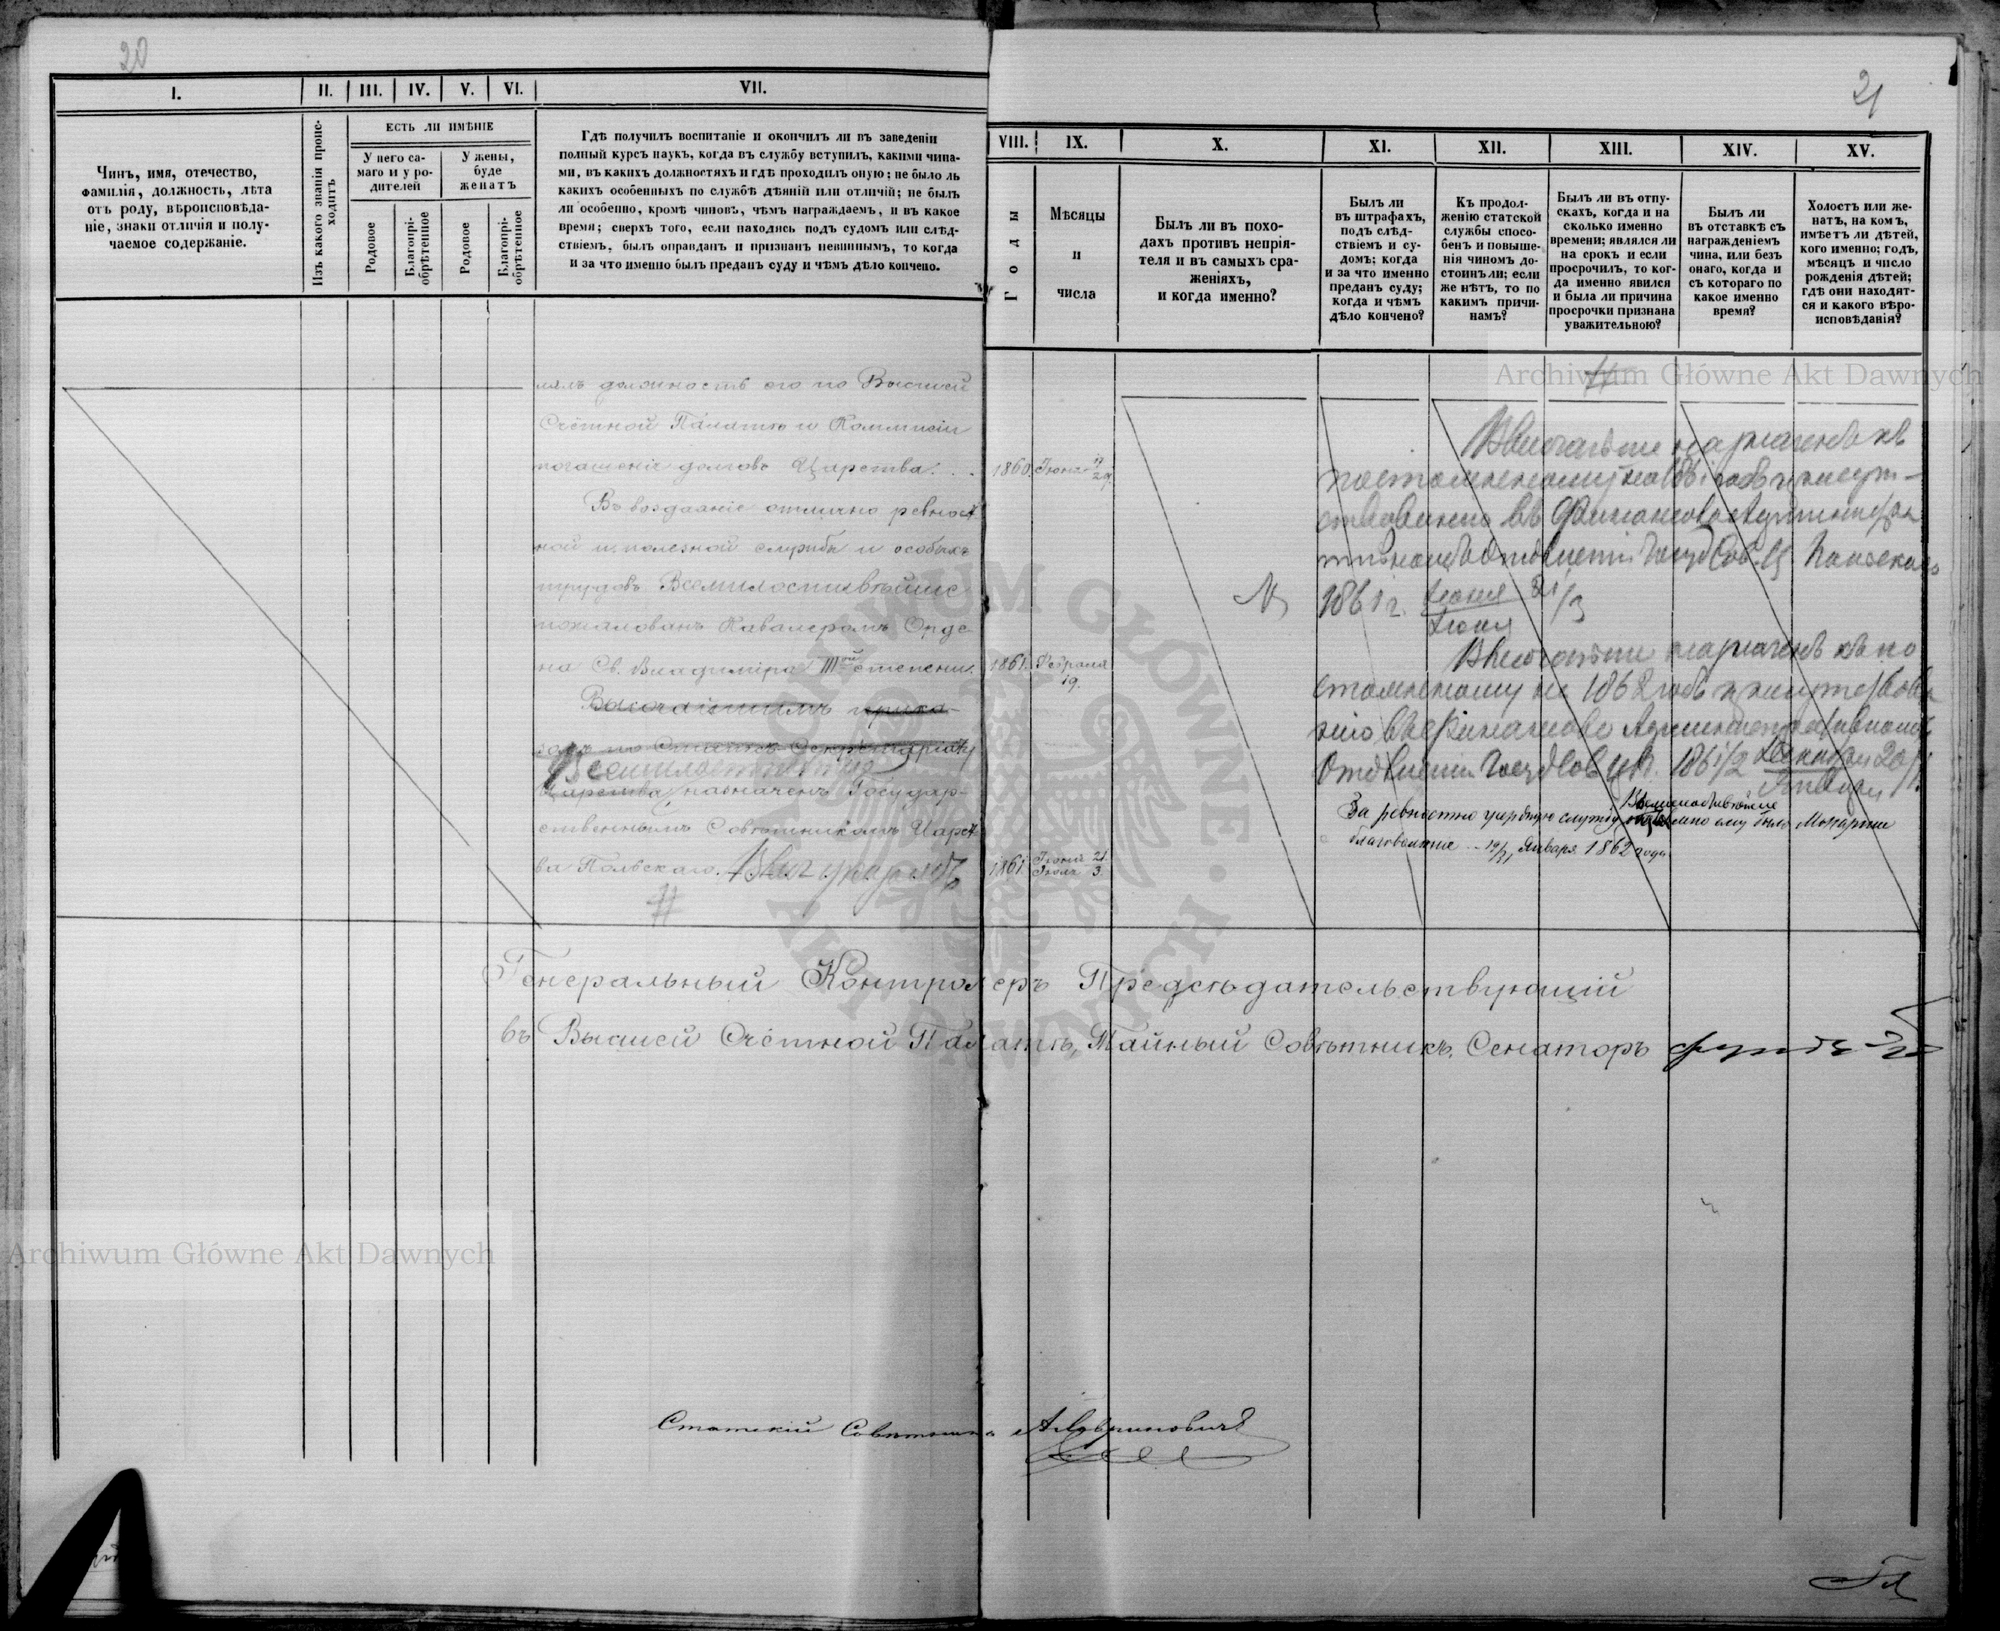 20
I.
II.
III.
IV.
V.
VI.
VII.
Чинъ, имя, отечество,
фамилія, должность, лѣта
отъ роду, вѣроисповѣда-
ніе, знаки отличія и полу-
чаемое содержаніе.
Изъ какого званія проис-
ходитъ
ЕСТЬ ЛИ ИМѢНІЕ
У него са-
маго и у ро-
дителей
У жены,
буде
женатъ
Родовое
Благопрі-
обрѣтенное
Родовое
Благопрі-
обрѣтенное
Гдѣ получилъ воспитаніе и окончилъ ли въ заведеніи
полный курсъ наукъ, когда въ службу вступилъ, какими чина-
ми, въ какихъ должностяхъ и гдѣ проходилъ оную; не было ль
какихъ особенныхъ по службѣ дѣяній или отличій; не былъ
ли особенно, кромѣ чиновъ, чѣмъ награждаемъ, и въ какое
время; сверхъ того, если находясь подъ судомъ или слѣд-
ствіемъ, былъ оправданъ и признанъ невиннымъ, то когда
и за что именно былъ преданъ суду и чѣмъ дѣло кончено.
лялъ должность его по Высшей
Счётной Палатѣ и Коммисіи
погашенія долговъ Царства. . .
Въ воздаяніе отлично ревност
ной и полезной службы и особыхъ
трудовъ Всемилостивѣйше
пожалованъ Кавалеромъ Орде-
на Св. Владиміра IIIой степени.
Высочайшимъ прика-
зомъ по Статсъ-Секретаріату
Всемилостивѣйше
Царства, назначенъ Государ-
ственнымъ Совѣтникомъ Царст
ва Польскаго.
21
VIII.
IX.
X.
XI.
XII.
XIII.
XIV.
XV.
Годы
Мѣсяцы
и
числа
Былъ ли въ похо-
дахъ противъ непрія-
теля и въ самыхъ сра-
женіяхъ,
и когда именно?
Былъ ли
въ штрафахъ,
подъ слѣд-
ствіемъ и су-
домъ; когда
и за что именно
преданъ суду;
когда и чѣмъ
дѣло кончено?
Къ продол-
женію статской
службы спосо-
бенъ и повыше-
нія чиномъ до-
стоинъ ли; если
же нѣтъ, то по
какимъ причи-
намъ?
Былъ ли въ отпу-
скахъ, когда и на
сколько именно
времени; явился ли
на срокъ и если
просрочилъ, то ког-
да именно явился
и была ли причина
просрочки признана
уважительною?
Былъ ли
въ отставкѣ съ
награжденіемъ
чина, или безъ
онаго, когда и
съ котораго по
какое именно
время?
Холостъ или же-
натъ, на комъ,
имѣетъ ли дѣтей,
кого именно; годъ,
мѣсяцъ и число
рожденія дѣтей;
гдѣ они находят-
ся и какого вѣро-
исповѣданія?
1860. Іюня 17/29.
1861. Февраля
19.
1861. Іюня 21.
Іюля 3.
Высочайше назначенъ къ
постоянному на 1861 годъ присут-
ствованію въ Финансово Администра
1861 г. Іюня 21/3
Іюля
Высочайше назначенъ къ по
стоянному на 1862 годъ присутствова
нію въ Финансово Административномъ
Отдѣленіи Госуд Сов Ц. П. 1861/2 Декабря 20/1
Января
За ревностно усердную службу Всемилостивѣйше
объявлено ему было Монаршее
благоволеніе - 19/31 Января 1862 года
Генеральный Контролеръ Предсѣдательствующій
въ Высшей Счётной Палатѣ, Тайный Совѣтникъ, Сенаторъ
Статскій Совѣтникъ А. Лавриновичъ
Archiwum Główne Akt Dawnych
Archiwum Główne Akt Dawnych
ARCHIWUM GŁÓWNE AKT DAWNYCH